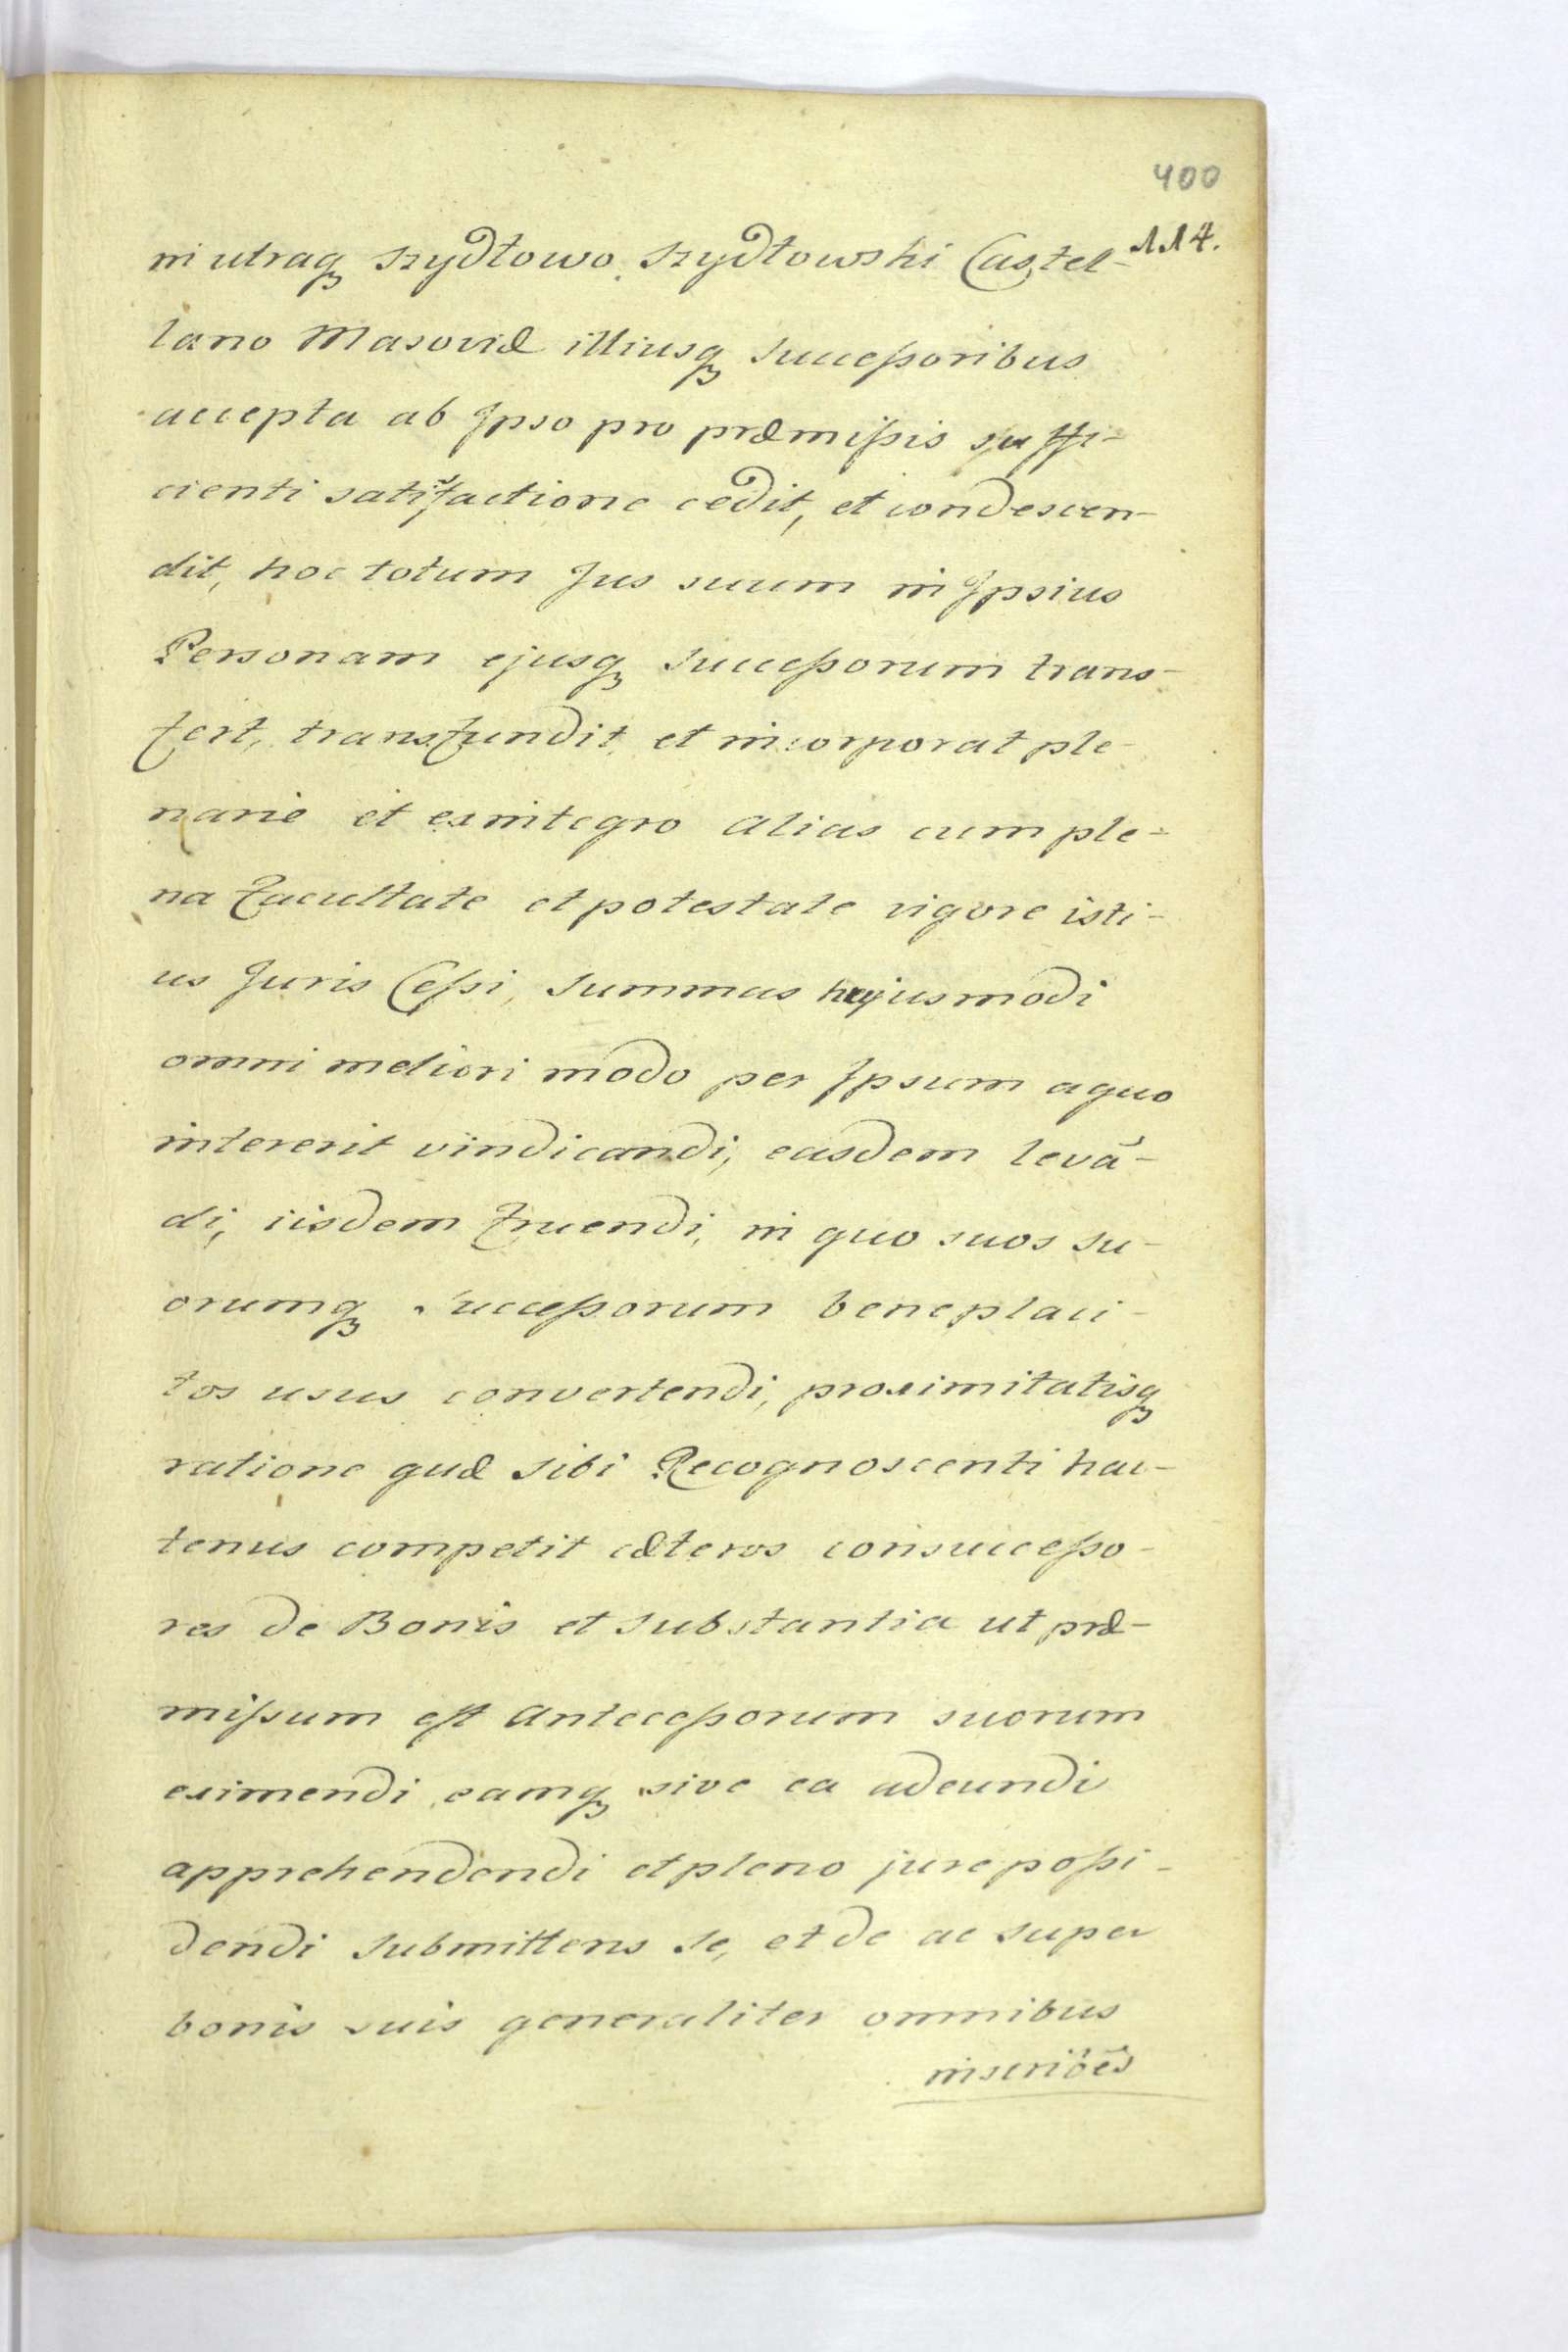 400
114.
in utraq₃ Szydłowo Szydłowski Castel-
lano Masoviæ illiusq₃ Successoribus
accepta ab Ipso pro præmissis suffi-
cienti satisfactione cedit, et condescen-
dit, hoc totum Jus suum in Ipsius
Personam ejusq₃ Successorum trans-
fert, transfundit et incorporat ple-
narie et ex integro alias cum ple-
na facultate et potestate vigore isti-
us Juris Cessi, Summas hujusmodi
omni meliori modo per Ipsum a quo
intererit vindicandi, easdem levā-
di, iisdem fruendi, in quo suos su-
orumq₃ Successorum beneplaci-
tos usus convertendi, proximitatisq₃
ratione quæ sibi Recognoscenti hac-
tenus competit cæteros consuccesso-
res de Bonis et Substantia ut præ-
missum est Antecessorum suorum
eximendi eamq₃ sive ea adeundi
apprehendendi et pleno jure possi-
dendi submittens se, et de ac super
bonis suis generaliter omnibus
inscriões